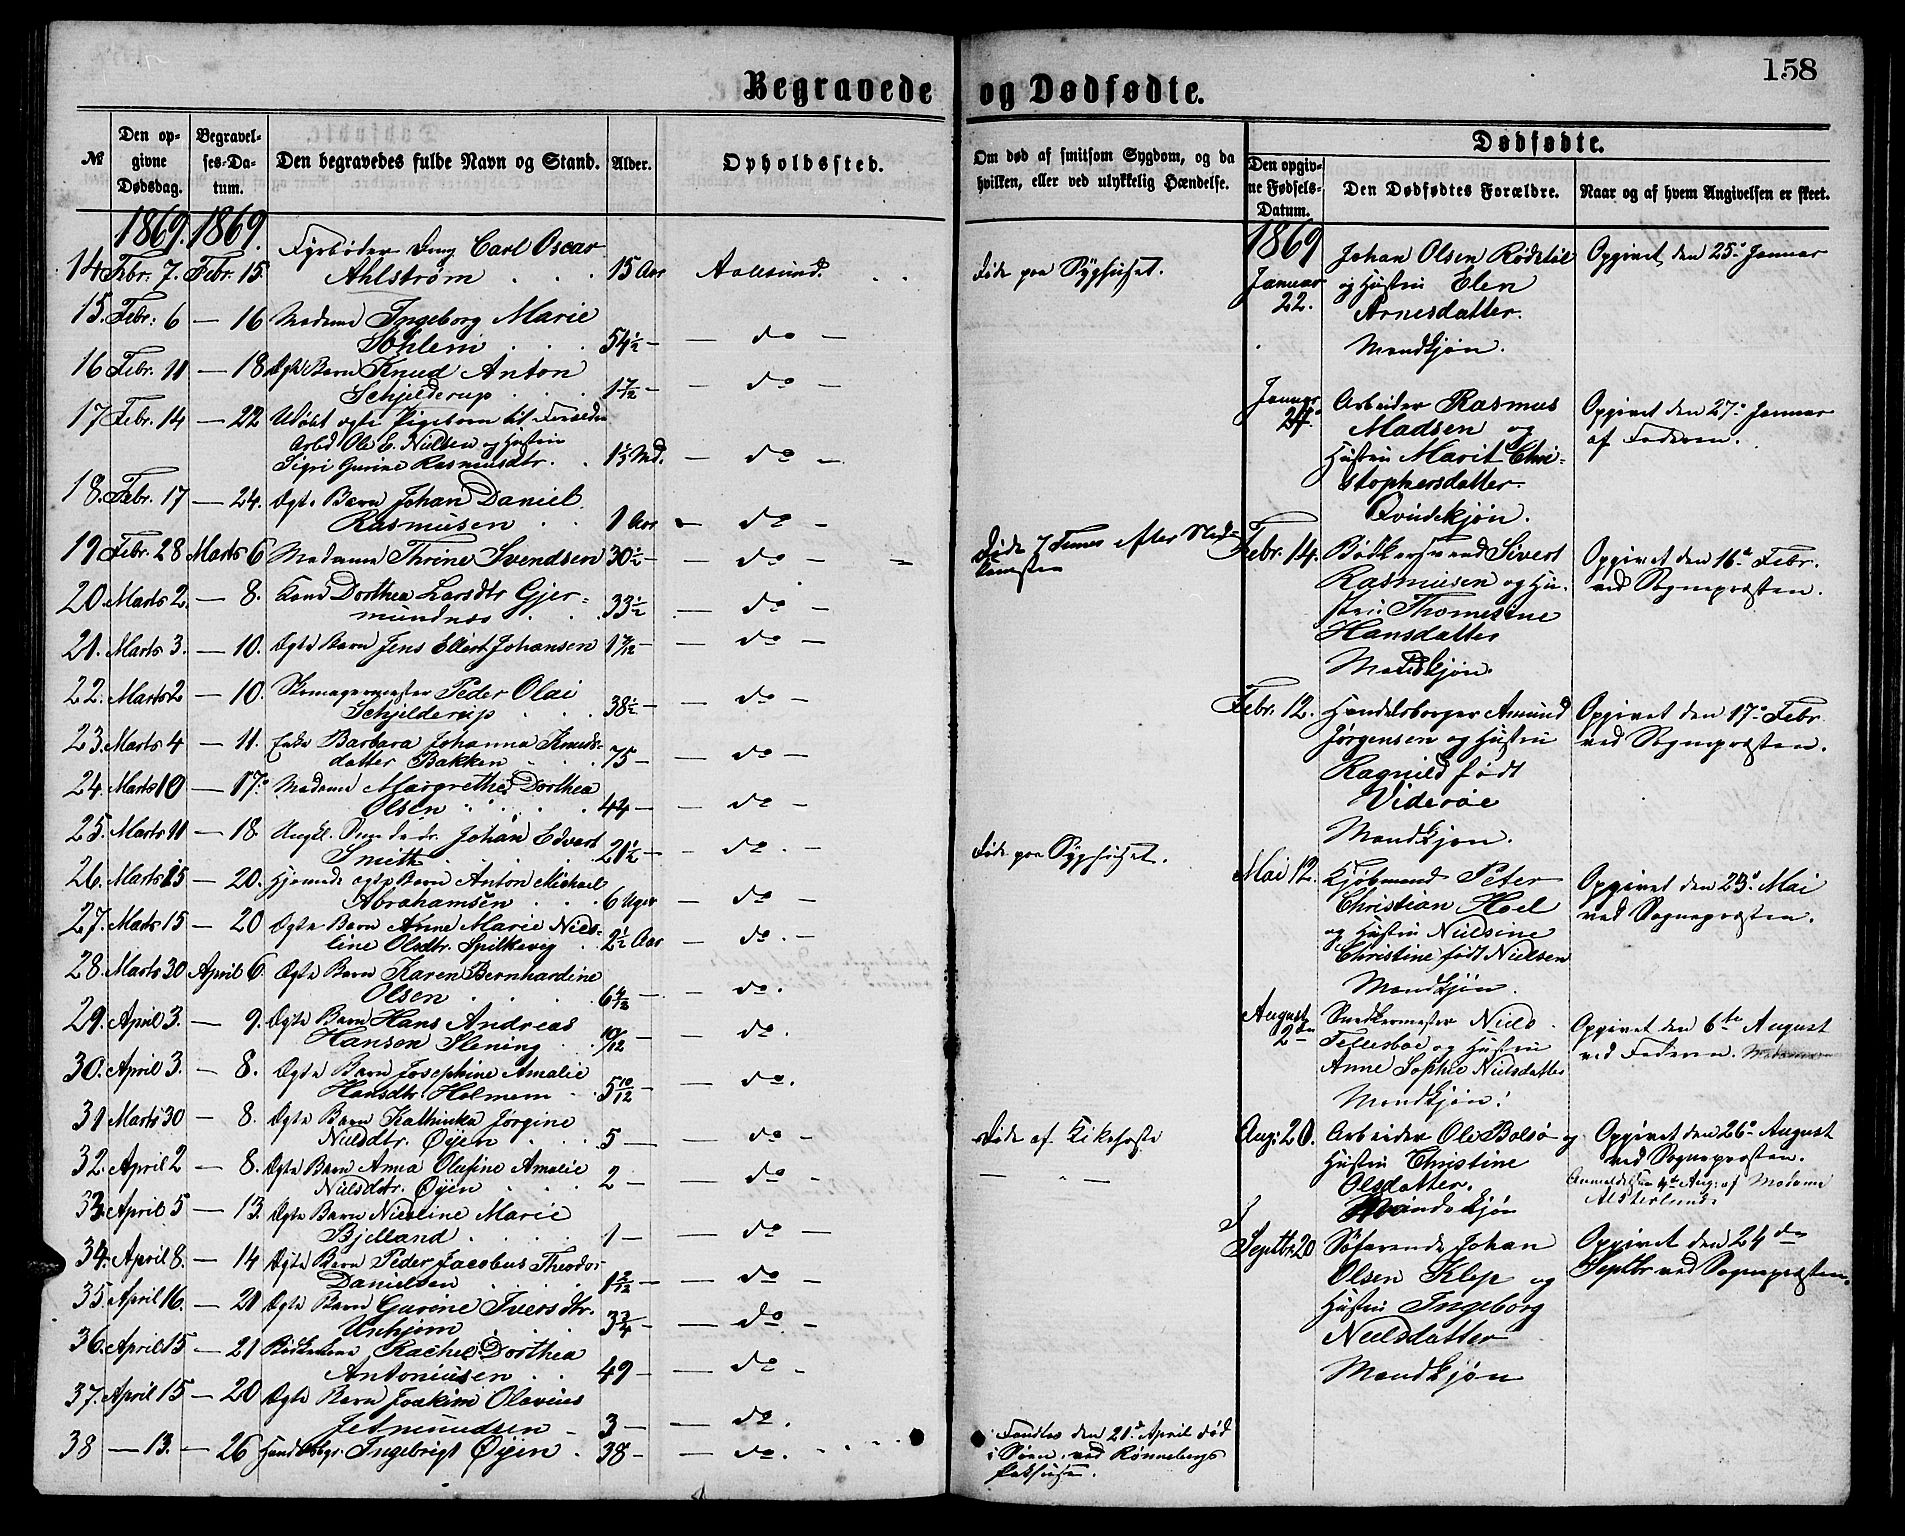 158
Begravede og Dødfødte.
№
Den opgivne Dødsdag.
Begravelses-Datum.
Den begravedes fulde Navn og Stand.
Alder.
Opholdssted.
Om død af smitsom Sygdom, og da hvilken, eller ved ulykkelig Hændelse.
Dødfødte.
Den opgivne Fødsels-Datum.
Den Dødfødtes Forældre.
Naar og af hvem Angivelsen er skeet.
1869. 1869.
Fyrbøder Carl Oscar
14 Febr. 7. Febr. 15. Ahlström 15 Aar Aalesund. Døde paa Sygehuset.
15. Febr. 6 — 16 Madame Ingeborg Marie
Sohlem 54½ — — do —
16 Febr. 11 — 18 Ægte Barn Knud Anton
Schjelderup 1 7/12 — — do —
17 Febr. 14 — 22 Udøbt ægte Pigebarn til
Arbd Ole E. Nielsen og Hustru
Sigri Gurine Rasmusdtr. 1⅓ Md. — do —
18. Febr. 17 — 24. Ægte Barn Johan Daniel
Rasmusen 1 Aar — do —
19 Febr. 28 Marts 6 Madame Thrine Svendsen 30½ — — do — Døde 7 Timer efter Nedkomsten
20. Marts 2. — 8. Dorthea Larsdtr Gjer=
mundnes 33½ — do —
21. Marts 3. — 10. Ægte Barn Jens Ellert Johansen — do —
22. Marts 2 — 10. Skomagermester Peder Olai
Schjelderup 38½ — — do —
23. Marts 4 — 11. Enke Barbara Johanna Knuds-
datter Bakken 75 — — do —
24. Marts 10 — 17. Madame Margrethe Dorthea
Olsen 44 — — do —
25. Marts 11 — 18. Ungkl. Johan Edvart
Smith 21½ — — do. — Døde paa Sygehuset.
26. Marts 15 — 20. Hjemmedøbt Barn Anton Michael
Abrahamsen 6 Uger — do —
27. Marts 15 — 20 Ægte Barn Anne Marie Nico-
line Olsdtr. Spilkevig 2½ Aar — do. —
28. Marts 30 April 6. Ægte Barn Karen Bernhardine
Olsen — do.
29. April 3. — 9. Ægte Barn Hans Andreas
Hansen Slening 10/12 — — do.
30. April 3. — 8. Ægte Barn Josephine Amalie
Hansdtr. Holmem 5 10/12 — — do.
31 Marts 30 — 8. Ægte Barn Kathinka Jørgine
Nielsdtr. Øyen 5 — — do — Døde af Kikhoste
32. April 2 — 8. Ægte Barn Anna Olufine Amalie
Nielsdtr. Øyen 2 — — do. — " —
33 April 5 — 13. Ægte Barn Nicoline Marie
Bjelland 1 — — do —
34. April 8. — 14 Ægte Barn Peder Jacobus Theodor
Danielsen — do —
35. April 16. — 21 Ægte Barn Gurine Iversdtr.
Unhjem 3¾ — — do.
36. April 15 — 21 Rachel Dorthea
Antoniusen 49 — — do —
37. April 15 — 20 Ægte Barn Joakim Olavius
Jetmundsen 3 — — do.
38 — 13. — 26 Handelsbgr. Ingebrigt Øyen 38 — — do. Fandtes den 21. April død
i Søen ved Rønnebergs
Pakhuse.
1869
Januar 22. Johan Olsen Rødetøl
og Hustru Elen
Arnesdatter.
Mandkjøn.
Opgivet den 25. Januar
Januar 24. Arbeider Rasmus
Madsen og
Hustru Marit Chri-
stophersdatter.
Qvindekjøn.
Opgivet den 27. Januar
af Faderen.
Febr. 14. Bødkersvend Sivert
Rasmusen og Hu-
stru Thomesine
Hansdatter
Mandkjøn
Opgivet den 16. Febr.
ved Sognepræsten.
Febr. 12. Handelsborger Amund
Jørgensen og Hustru
Ragnild født
Viderøe
Mandkjøn.
Opgivet den 17. Febr.
ved Sognepræsten.
Mai 12. Kjøbmand Peter
Christian Hoel
og Hustru Nielsine
Christine født Nielsen
Mandkjøn.
Opgivet den 23. Mai
ved Sognepræsten.
August 2den Snedkermester Niels
Tellesbøe og Hustru
Anne Sophie Nielsdatter
Mandkjøn.
Opgivet den 6te August
ved Faderen.
Aug. 20. Arbeider Ole Bolsø og
Hustru Christine
Olsdatter.
Mandskjøn
Opgivet den 26. August
ved Sognepræsten.
Anmeldelsen Aug. af Madame
Alsterlund.
Septbr. 20 Søfarende Johan
Olsen Klep og
Hustru Ingeborg
Nielsdatter
Mandkjøn
Opgivet den 24de
Septbr ved Sognepræsten.